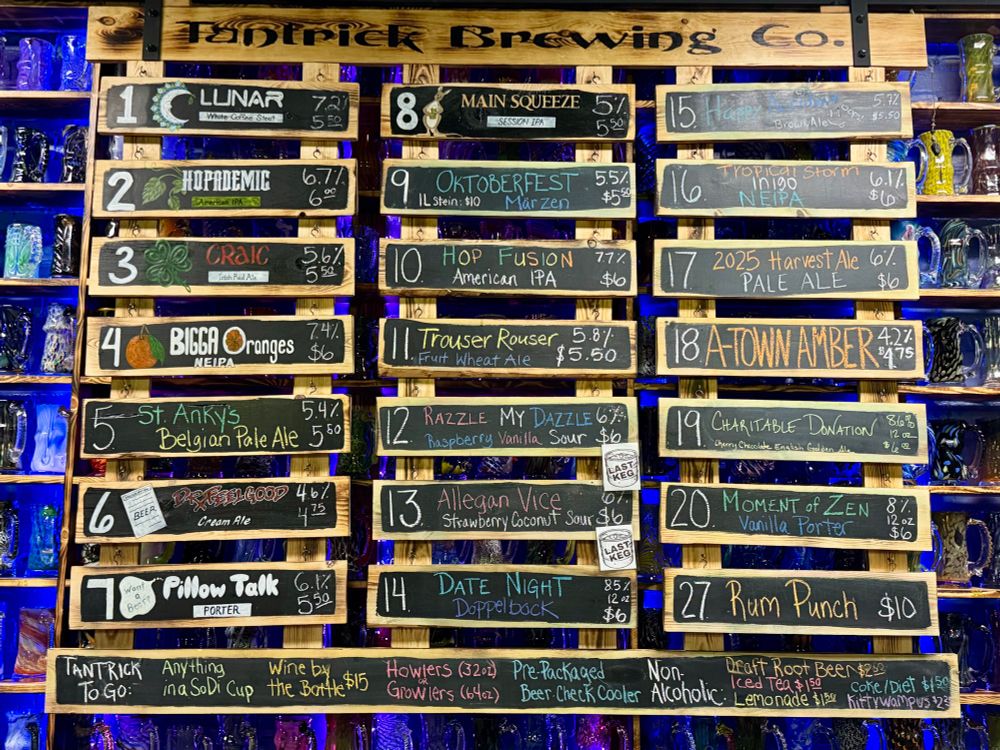 Tantrick Brewing Co.
1 LUNAR 7.2%
White Coffee Stout 5.50
2 HOPADEMIC 6.7%
American IPA 6.00
3 CRAIC 5.6%
Irish Red Ale 5.50
4 BIGGA Oranges 7.4%
NEIPA $6
5 St. Anky's 5.4%
Belgian Pale Ale 5.50
6 BEER DR. FEELGOOD 4.6%
Cream Ale 4.75
7 Won't a Best? Pillow Talk 6.1%
PORTER 5.50
8 MAIN SQUEEZE 5%
SESSION IPA 5.50
9 OKTOBERFEST 5.5%
1L Stein: $10 Märzen $5.50
10 HOP FUSION 7.7%
American IPA $6
11 TROUSER ROUSER 5.8%
Fruit Wheat Ale $5.50
12 RAZZLE MY DAZZLE 6%
Raspberry Vanilla Sour $6
LAST KEG
13 Allegan Vice 6%
Strawberry Coconut Sour $6
LAST KEG
14 DATE NIGHT 8.5%
12 oz
Doppelbock $6
15 Happy 5.7%
Brown Ale $5.50
16 Tropical Storm
Inigo 6.1%
NEIPA $6
17 2025 Harvest Ale 6%
PALE ALE $6
18 A-TOWN AMBER 4.2%
$4.75
19 CHARITABLE DONATION 8.6%
12 oz
Cherry Chocolate English Golden Ale $6
20 MOMENT of ZEN 8%
12 oz
Vanilla Porter $6
27 Rum Punch $10
TANTRICK TO GO:
Anything in a SoDi Cup
Wine by the Bottle $15
Howlers (32oz) or
Growlers (64oz)
Pre-Packaged
Beer-Check Cooler
Non-Alcoholic:
Draft Root Beer
Iced Tea $1.50
Lemonade $1.50
Coke/Diet $1.50
Kittywampus